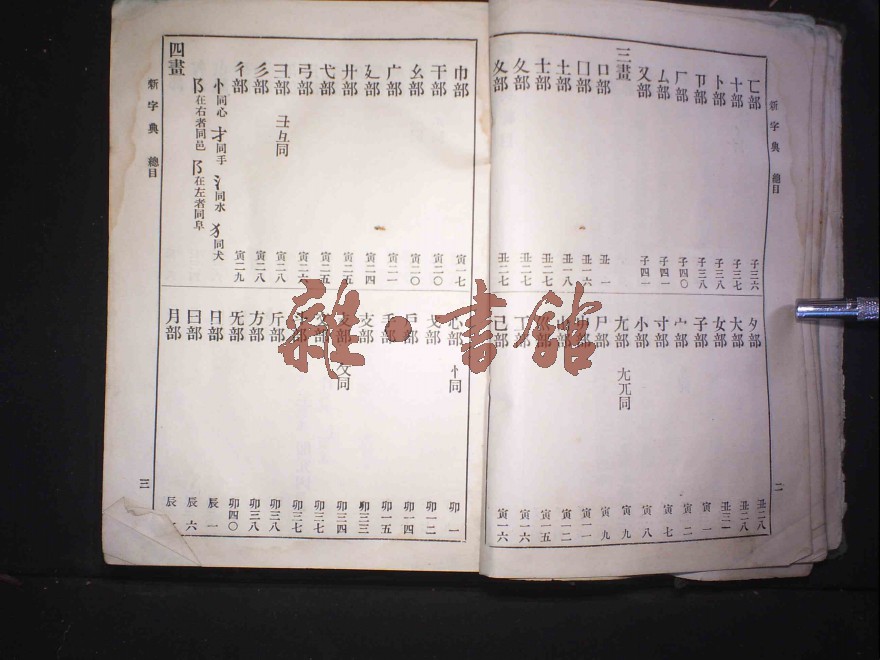 新字典 總目
二
匸部 子三六
十部 子三七
卜部 子三八
卩部 子三八
厂部 子四〇
厶部 子四一
又部 子四一
三畫
口部 丑一
囗部 丑一六
土部 丑一八
士部 丑二七
夂部 丑二七
夊部 丑二七
夕部 丑二八
大部 丑二八
女部 丑三一
子部 寅一
宀部 寅二
寸部 寅七
小部 寅八
尢部 尣兀同 寅九
尸部 寅九
寅一一
寅一二
寅一五
工部 寅一六
己部 寅一六
巾部 寅一七
干部 寅二〇
幺部 寅二〇
广部 寅二一
廴部 寅二四
廾部 寅二五
弋部 寅二五
弓部 寅二六
彐部 彑同 寅二八
彡部 寅二八
彳部 寅二九
忄同心 扌同手 氵同水 犭同犬
阝在右者同邑 阝在左者同阜
四畫
心部 忄同 卯一
戈部 卯一二
戶部 卯一四
手部 卯一五
支部 卯三三
攴部 攵同 卯三四
文部 卯三七
斗部 卯三七
斤部 卯三八
方部 卯三八
无部 卯四〇
日部 辰一
曰部 辰六
月部 辰
新字典 總目
三
雜·書館